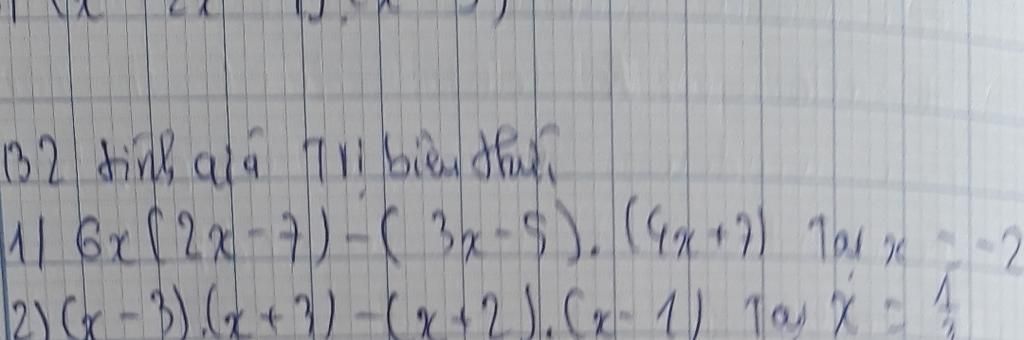 B2 tính giá trị biểu thức
1) 6x(2x-7)-(3x-5).(4x+7) Tại x = -2
2) (x-3).(x+3)-(x+2).(x-1) Tại x =